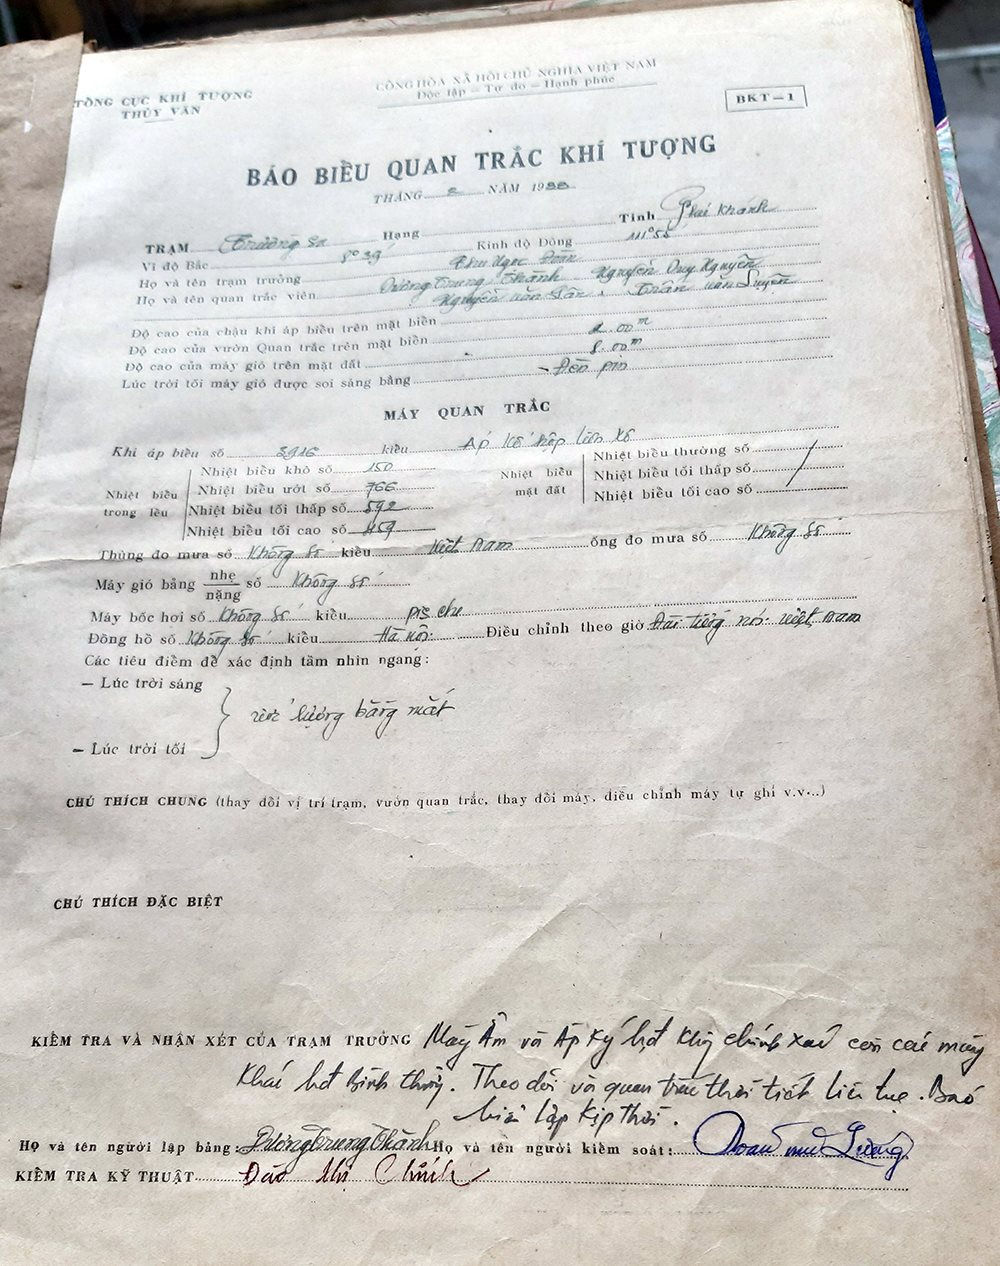 TỔNG CỤC KHÍ TƯỢNG
THỦY VĂN
CỘNG HÒA XÃ HỘI CHỦ NGHĨA VIỆT NAM
Độc lập – Tự do – Hạnh phúc
BKT – 1
BÁO BIỂU QUAN TRẮC KHÍ TƯỢNG
THÁNG 2 NĂM 1988
TRẠM Trường Sa Hạng Tỉnh Phú Khánh
Vĩ độ Bắc 8°39 Kinh độ Đông 111°55
Họ và tên trạm trưởng Ngọc
Họ và tên quan trắc viên Dương Trung Thành Nguyễn Duy Nguyên
Nguyễn văn Tân, Trần văn Luyện
Độ cao của chậu khí áp biểu trên mặt biển
Độ cao của vườn Quan trắc trên mặt biển 2.00m
Độ cao của máy gió trên mặt đất 8.00m
Lúc trời tối máy gió được soi sáng bằng – Đèn pin
MÁY QUAN TRẮC
Khí áp biểu số 3916 kiểu Áp kế hộp liên Xô
Nhiệt biểu trong lều
Nhiệt biểu khô số 150
Nhiệt biểu ướt số 766
Nhiệt biểu tối thấp số 592
Nhiệt biểu tối cao số 459
Nhiệt biểu mặt đất
Nhiệt biểu thường số
Nhiệt biểu tối thấp số
Nhiệt biểu tối cao số
Thùng đo mưa số Không số kiểu Việt Nam ống đo mưa số Không số
Máy gió bảng nhẹ/nặng số Không số
Máy bốc hơi số Không số kiểu piche
Đồng hồ số Không số kiểu Hà Nội Điều chỉnh theo giờ Đài tiếng nói Việt Nam
Các tiêu điểm để xác định tầm nhìn ngang:
– Lúc trời sáng
ước lượng bằng mắt
– Lúc trời tối
CHÚ THÍCH CHUNG (thay đổi vị trí trạm, vườn quan trắc, thay đổi máy, điều chỉnh máy tự ghi v.v...)
CHÚ THÍCH ĐẶC BIỆT
KIỂM TRA VÀ NHẬN XÉT CỦA TRẠM TRƯỞNG Máy Ẩm và Áp ký hđ không chính xác còn các máy
khác hđ Bình thường. Theo dõi và quan trắc thời tiết liên tục. Báo
biểu lập kịp thời.
Họ và tên người lập bảng: Dương Trung Thành Họ và tên người kiểm soát: Lương
KIỂM TRA KỸ THUẬT Đào thị Chính